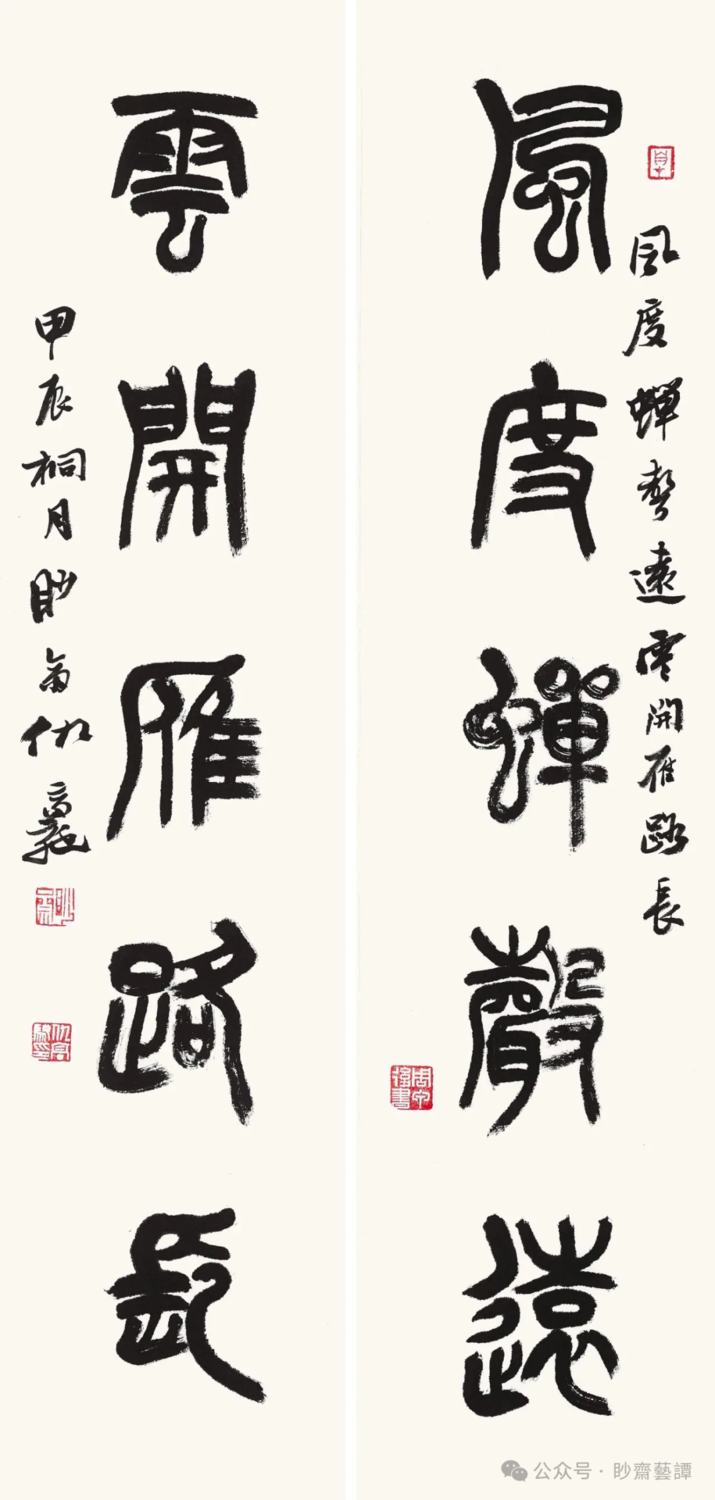 风度蟬聲遠雲開雁路長
風度蟬聲遠
雲開雁路長
甲辰桐月眇斋仇高馳
公众号 · 眇齋藝譚